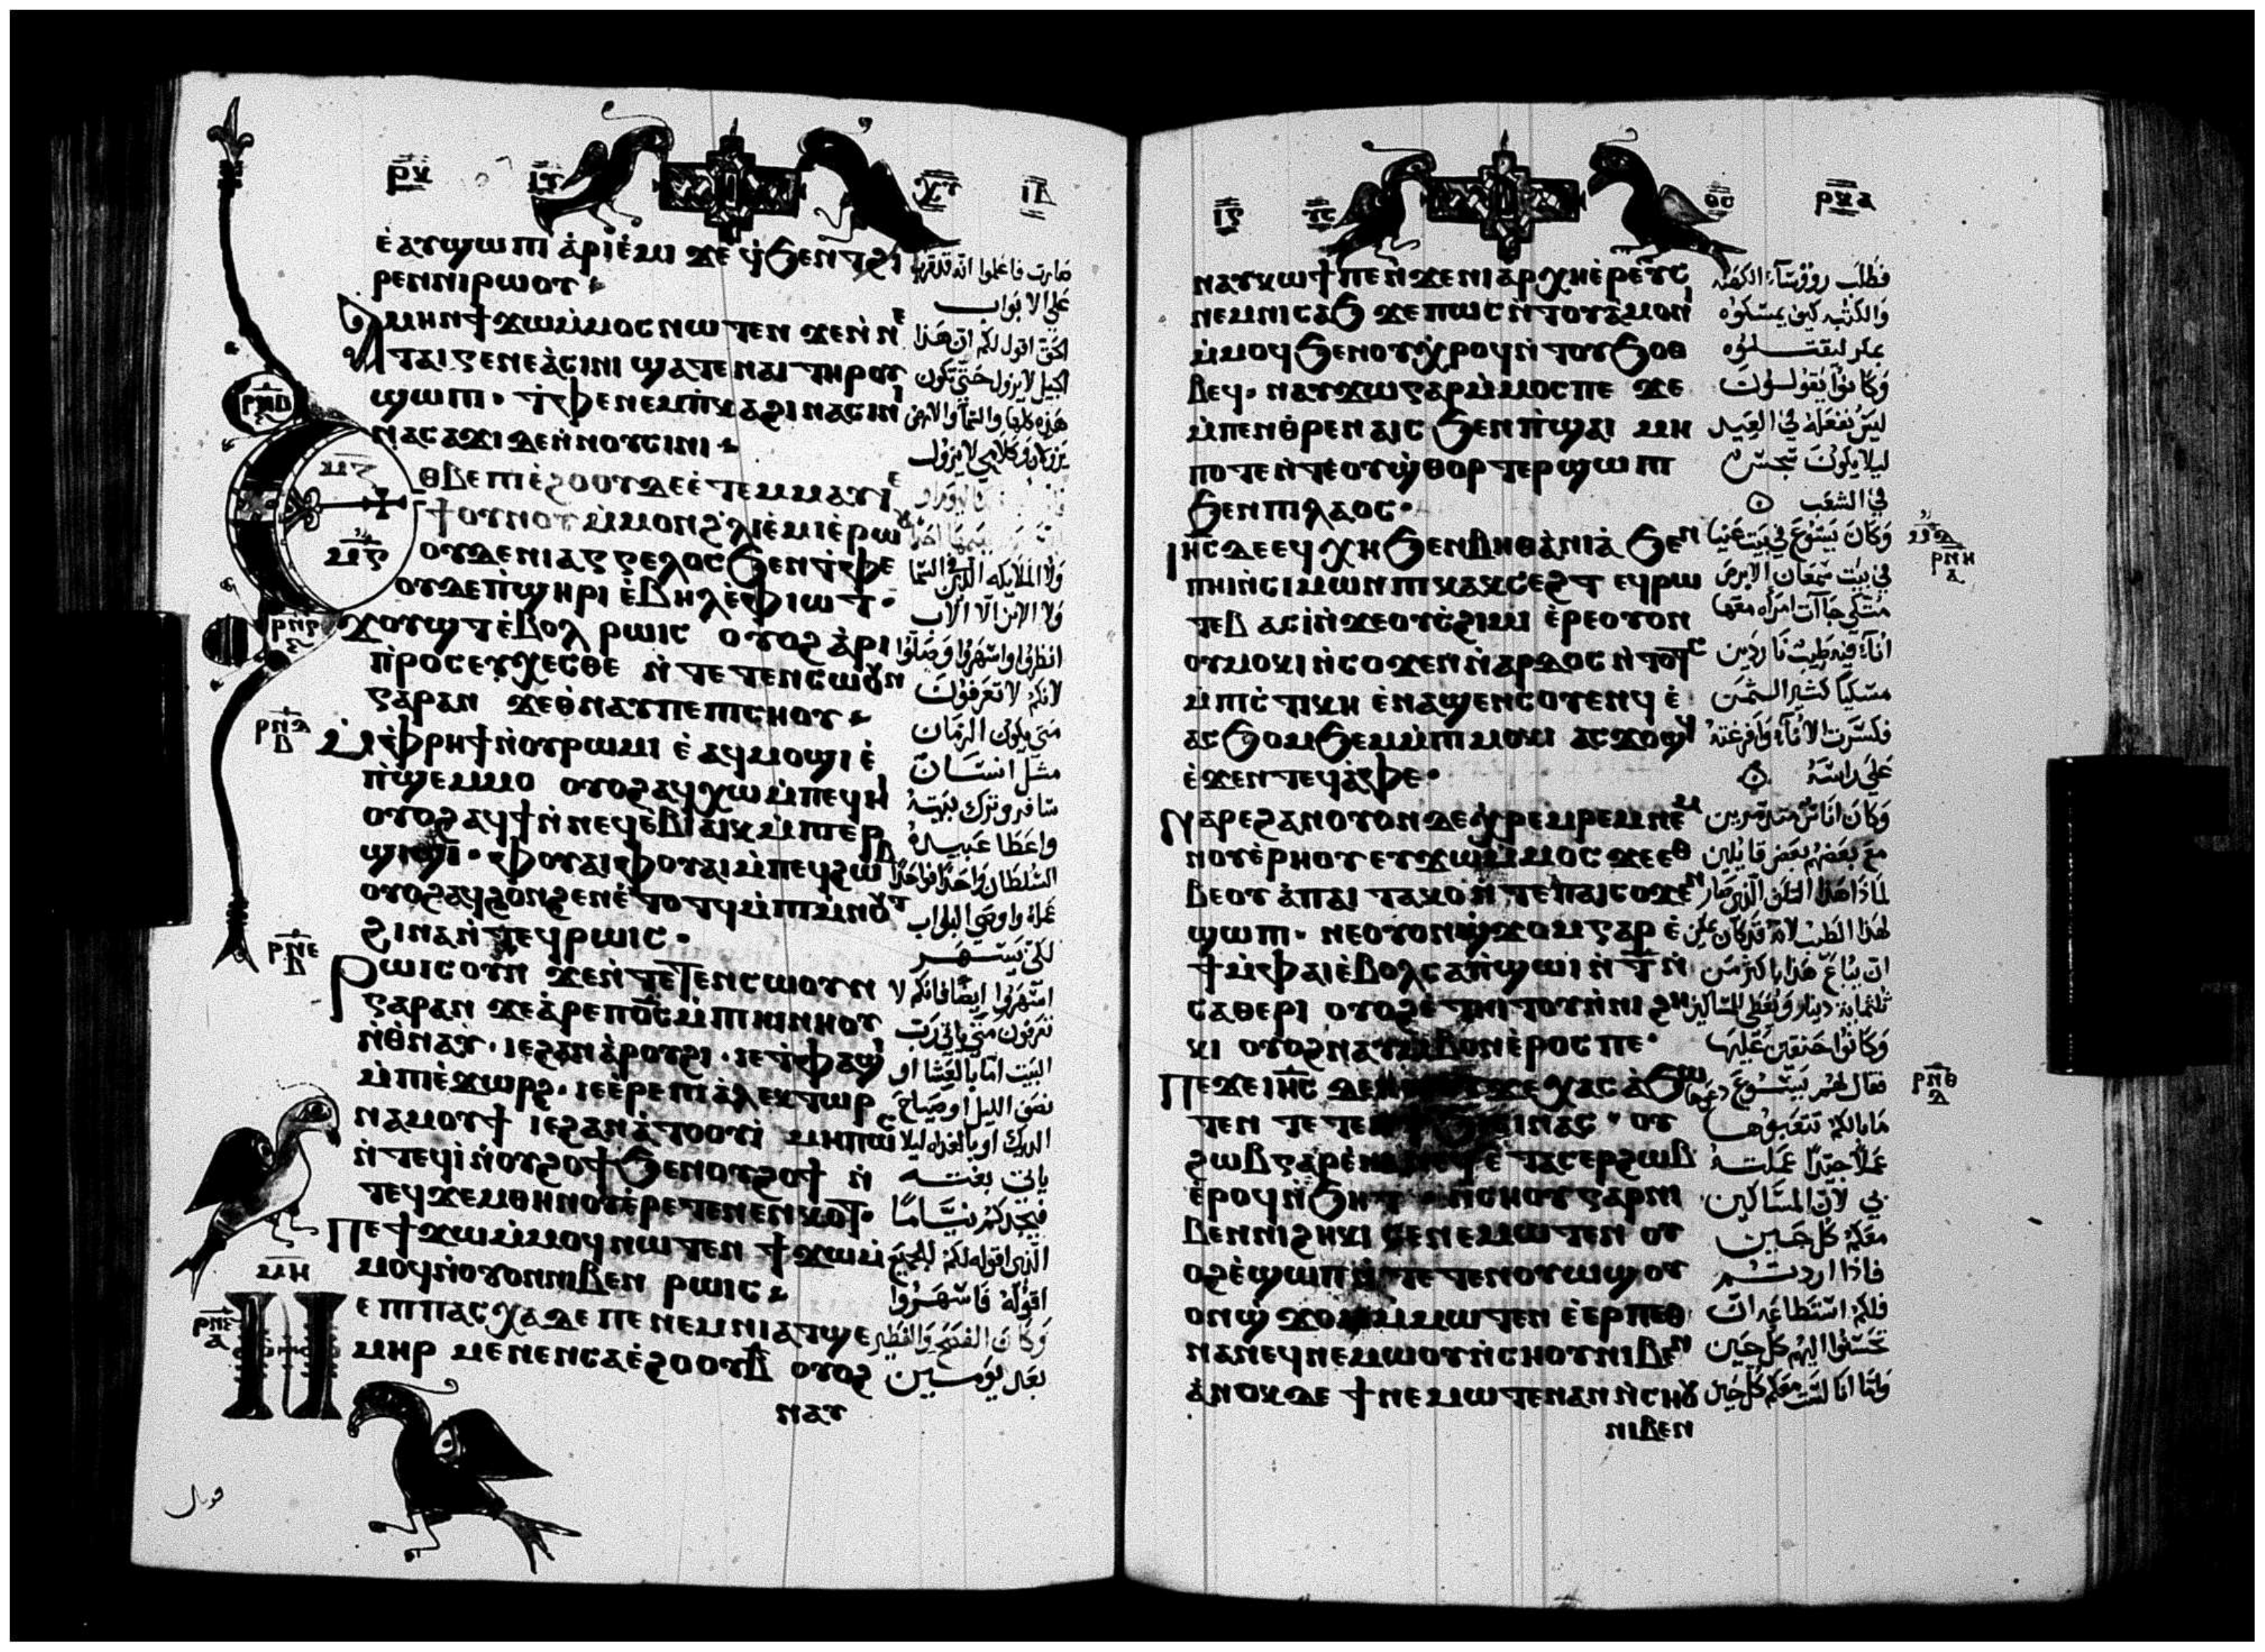 ⲣⲝ ⲓⲩ ⲭⲩ ⲓⲇ
ⲉⲁⲩϣⲱⲡⲓ ⲁⲣⲓⲉⲙⲓ ϫⲉ ϥϧⲉⲛⲧ ϩⲓ
ⲣⲉⲛⲛⲓⲣⲱⲟⲩ
ⲁⲙⲏⲛ ϯϫⲱⲙⲙⲟⲥ ⲛⲱⲧⲉⲛ ϫⲉⲛⲛⲉ
ⲧⲁⲓⲅⲉⲛⲉⲁⲥⲓⲛⲓ ϣⲁⲧⲉⲛⲁⲓ ⲧⲏⲣⲟⲩ
ϣⲱⲡⲓ · ⲧⲫⲉⲛⲉⲙⲡⲕⲁϩⲓⲛⲁⲥⲓⲛⲓ
ⲛⲁⲥⲁϫⲓ ⲇⲉⲛⲛⲟⲩⲥⲓⲛⲓ
ⲉⲑⲃⲉ ⲡⲓⲉϩⲟⲟⲩⲇⲉⲉⲧⲉⲙⲙⲁⲩⲓⲉ
ϯⲟⲩⲛⲟⲩ ⲙⲙⲟⲛϩⲗⲓⲉⲙⲓⲉⲣⲱⲟⲩ
ⲟⲩⲇⲉⲛⲓⲁⲅⲅⲉⲗⲟⲥϧⲉⲛⲧⲫⲉ
ⲟⲩⲇⲉⲡϣⲏⲣⲓ ⲉⲃⲏⲗⲉⲫⲓⲱⲧ ·
ϫⲟⲩϣⲧⲉⲃⲟⲗ ⲣⲱⲓⲥ ⲟⲩⲟϩ ⲁⲣⲓ
ⲡⲣⲟⲥⲉⲩⲭⲉⲥⲑⲉ ⲛⲧⲉⲧⲉⲛⲥⲱⲟⲩⲛ
ⲅⲁⲣⲁⲛ ϫⲉⲑⲛⲁⲩⲡⲉⲡⲓⲥⲏⲟⲩ
ⲙⲫⲣⲏϯⲛⲟⲩⲣⲱⲙⲓ ⲉⲁϥⲙⲟϣⲓ ⲉ
ⲡϣⲉⲙⲙⲟ ⲟⲩⲟϩⲁϥⲭⲱⲙⲡⲉϥⲏⲓ
ⲟⲩⲟϩⲁϥϯⲛⲛⲉϥⲉⲃⲓⲁⲓⲕⲙⲡⲓⲉⲣ
ϣⲓϣⲓ · ⲫⲟⲩⲁⲓⲫⲟⲩⲁⲓⲙⲡⲉϥϩⲱⲃ
ⲟⲩⲟϩⲁϥϩⲟⲛϩⲉⲛⲉⲧⲟⲧϥⲙⲡⲓⲙⲛⲟⲩⲧ
ϩⲓⲛⲁⲛⲧⲉϥⲣⲱⲓⲥ ·
ⲣⲱⲓⲥⲟⲩⲛ ϫⲉⲛⲧⲉⲧⲉⲛⲥⲱⲟⲩⲛ
ⲅⲁⲣⲁⲛ ϫⲉⲁⲣⲉⲡⲟⲥⲙⲡⲓⲏⲓⲛⲏⲟⲩ
ⲛⲑⲛⲁⲩ · ⲓⲉϩⲁⲛⲁⲣⲟⲩϩⲓ · ⲓⲉⲧⲫⲁϣⲓ
ⲙⲡⲓⲉϫⲱⲣϩ · ⲓⲉⲉⲣⲉⲡⲓⲁⲗⲉⲕⲧⲱⲣ
ⲛⲁⲙⲟⲩϯ ⲓⲉϩⲁⲛⲁⲧⲟⲟⲩⲓ ⲙⲏⲡⲱⲥ
ⲛⲧⲉϥⲓⲛⲟⲩϩⲟϯϧⲉⲛⲟⲩϩⲟϯ ⲛ
ⲧⲉϥϫⲉⲙⲑⲏⲛⲟⲩⲉⲣⲉⲧⲉⲛⲉⲛⲕⲟⲧ ·
ⲡⲉϯϫⲱⲙⲙⲟϥⲛⲱⲧⲉⲛ ϯϫⲱⲙ
ⲙⲟϥⲛⲟⲩⲟⲛⲛⲓⲃⲉⲛ ⲣⲱⲓⲥ
ⲛⲉ ⲡⲓⲡⲁⲥⲭⲁⲇⲉ ⲡⲉ ⲛⲉⲙⲛⲓⲁⲧϣⲉ
ⲙⲏⲣ ⲙⲉⲛⲉⲛⲥⲁⲉϩⲟⲟⲩⲃ ⲟⲩⲟϩ
ⲛⲁⲩ
صارت فاعلوا انه قد قرب
على الابواب
الحق اقول لكم ان هذا
الجيل لا يزول حتى تكون
هذه كلها والسما والارض
يزولان وكلامي لا يزول
ولا الملايكه الذين في السما
ولا الابن الا الاب
انظروا واسهروا وصلوا
لانكم لا تعرفون
متى يكون الزمان
مثل انسان
سافر وترك بيته
واعطا عبيده
السلطان واحدا فواحدا
عمله واوصى البواب
لكي يسهر
اسهروا ايضا فانكم لا
تعرفون متى ياتي رب
البيت اما بالعشا او
نصف الليل او صياح
الديك او بالغداه ليلا
ياتي بغته
فيجدكم نياما
الذي اقوله لكم للجميع
اقوله فاسهروا
وكان الفصح والفطير
بعد يومين
ⲣⲛⲃ
ⲙⲋ
ⲣⲛⲇ
ⲃ
ⲣⲛⲉ
ⲃ
ⲙⲏ
ⲣⲛⲋ
ⲁ
ⲓⲋ ⲩⲥ ⲑⲥ ⲣⲝⲁ
ⲛⲁⲩⲕⲱϯⲡⲉⲛϫⲉⲛⲓⲁⲣⲭⲏⲉⲣⲉⲩⲥ
ⲛⲉⲙⲛⲓⲥⲁϧ ϫⲉⲡⲱⲥⲛⲧⲟⲩⲁⲙⲟⲛⲓ
ⲙⲙⲟϥϧⲉⲛⲟⲩⲭⲣⲟϥⲛⲧⲟⲩϧⲟⲑ
ⲃⲉϥ · ⲛⲁⲩϫⲱⲅⲁⲣⲙⲙⲟⲥⲡⲉ ϫⲉ
ⲙⲡⲉⲛⲑⲣⲉⲛⲁⲓⲥ ϧⲉⲛⲡϣⲁⲓ ⲙⲏ
ⲡⲟⲧⲉⲛⲧⲉⲟⲩϣⲑⲟⲣⲧⲉⲣϣⲱⲡⲓ
ϧⲉⲛⲡⲓⲗⲁⲟⲥ ·
ⲓⲏⲥⲇⲉⲉϥⲭⲏϧⲉⲛⲃⲏⲑⲁⲛⲓⲁ ϧⲉⲛ
ⲡⲏⲓⲛⲥⲓⲙⲱⲛⲡⲓⲕⲁⲕⲥⲉϩⲧ ⲉϥⲣⲱ
ⲧⲉⲃ ⲁⲥⲓⲛϫⲉⲟⲩⲥϩⲓⲙⲓ ⲉⲣⲉⲟⲩⲟⲛ
ⲟⲩⲙⲟⲕⲓⲛⲥⲟϫⲉⲛⲛⲁⲣⲇⲟⲥⲛⲧⲟⲧⲥ
ⲙⲡⲓⲥⲧⲓⲕⲏ ⲉⲛⲁϣⲉⲛⲥⲟⲩⲉⲛϥ ⲉ
ⲁⲥϧⲟⲙϧⲉⲙⲙⲡⲓⲙⲟⲕⲓ ⲁⲥϫⲟϣϥ
ⲉϫⲉⲛⲧⲉϥⲁⲫⲉ ·
ⲛⲁⲣⲉϩⲁⲛⲟⲩⲟⲛⲇⲉⲭⲣⲉⲙⲣⲉⲙⲛⲉⲙ
ⲛⲟⲩⲉⲣⲏⲟⲩ ⲉⲩϫⲱⲙⲙⲟⲥ ϫⲉⲉⲑ
ⲃⲉⲟⲩ ⲁⲡⲁⲓ ⲧⲁⲕⲟⲛⲧⲉⲡⲁⲓⲥⲟϫⲉⲛ
ϣⲱⲡⲓ · ⲛⲉⲟⲩⲟⲛϣϫⲟⲙⲅⲁⲣ ⲉ
ϯⲙⲫⲁⲓⲉⲃⲟⲗⲥⲁⲡϣⲱⲓ ⲛⲧⲛ
ⲥⲁⲑⲉⲣⲓ ⲟⲩⲟϩⲉⲧⲏⲓⲧⲟⲩⲛⲛⲓϩⲏ
ⲕⲓ ⲟⲩⲟϩⲛⲁⲩⲙⲃⲟⲛⲉⲣⲟⲥⲡⲉ ·
ⲡⲉϫⲉ ⲓⲏⲥ ⲇⲉⲛ ϫⲉⲭⲁⲥ ⲁϧⲱ
ⲧⲉⲛ ⲧⲉⲧⲉⲛ · ⲟⲩ
ϩⲱⲃⲅⲁⲣⲉⲛⲁⲛⲉϥⲉⲧⲁⲥⲉⲣϩⲱⲃ
ⲉⲣⲟϥⲛϧⲏⲧ · ⲛⲥⲏⲟⲩⲅⲁⲣⲛⲓ
ⲃⲉⲛⲛⲓϩⲏⲕⲓ ⲥⲉⲛⲉⲙⲱⲧⲉⲛ ⲟⲩ
ⲟϩⲉϣⲱⲡ ⲁⲣⲉⲧⲉⲛⲟⲩⲱϣ ⲟⲩ
ⲟⲛϣϫⲟⲙⲙⲙⲱⲧⲉⲛ ⲉⲉⲣⲡⲉⲑ
ⲛⲁⲛⲉϥⲛⲉⲙⲱⲟⲩⲛⲥⲏⲟⲩⲛⲓⲃⲉⲛ
ⲁⲛⲟⲕⲇⲉ ϯⲛⲉⲙⲱⲧⲉⲛⲁⲛⲛⲥⲏⲟⲩ
ⲛⲓⲃⲉⲛ
فطلب رووساء الكهنه
والكتبه كيف يمسكوه
بمكر ليقتلوه
وكانوا يقولون
ليس نفعله في العيد
ليلا يكون تجسس
في الشعب
وكان يسوع في بيت عنيا
في بيت سمعان الابرص
متكي جاات امراه معها
اناء فيه طيب ناردين
مسكيا كثير الثمن
فكسرت الاناء وافرغته
على راسه
وكان اناس متذمرين
مع بعضهم بعض قايلين
لماذا هذا التلف الذي صار
لهذا الطيب لانه قد كان يمكن
ان يباع هذا باكثر من
ثلثماية دينار ويعطى للمساكين
وكانوا حنقين عليها
فقال لهم يسوع دعوها
ما بالكم تتعبوها
عملا جيدا عملته
بي لان المساكين
معكم كل حين
فاذا اردتم
فلكم استطاعه ان
تحسنوا اليهم كل حين
واما انا لست معكم كل حين
ⲣⲛⲏ
ⲁ
ⲣⲛⲑ
ⲇ